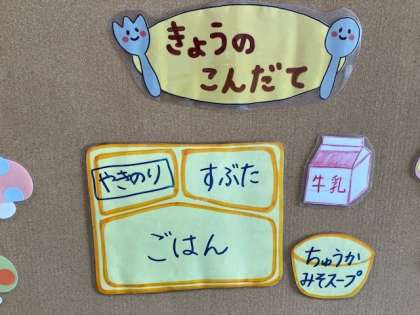 きょうの
こんだて
やきのり
すぶた
牛乳
ごはん
ちゅうか
みそスープ